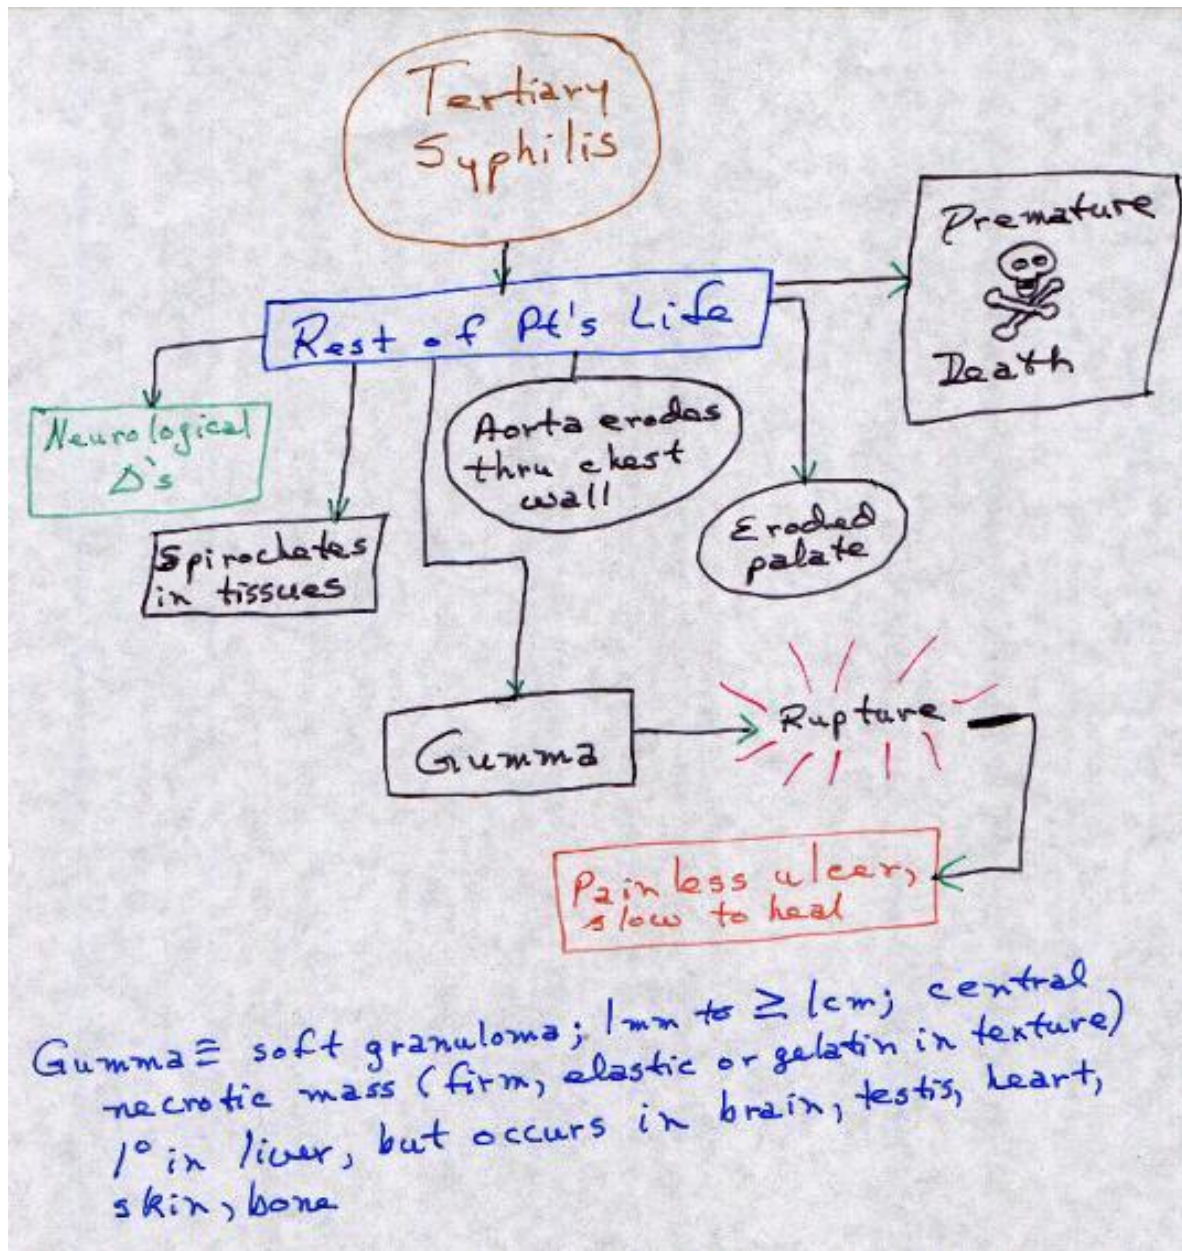 Tertiary
Syphilis
Rest of Pt's Life
Premature
Death
Neurological
Δ's
Spirochetes
in tissues
Aorta erodes
thru chest
wall
Eroded
palate
Gumma
Rupture
Painless ulcer,
slow to heal
Gumma ≡ soft granuloma; 1mm to ≥ 1cm; central
necrotic mass (firm, elastic or gelatin in texture)
1° in liver, but occurs in brain, testis, heart,
skin, bone